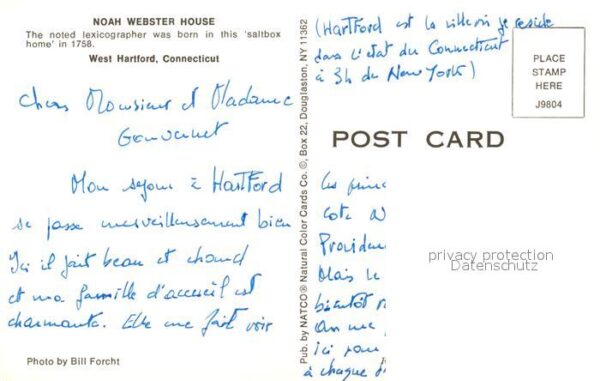 NOAH WEBSTER HOUSE
The noted lexicographer was born in this 'saltbox
home' in 1758.
West Hartford, Connecticut
Chers Monsieur et Madame
Mon sejour à Hartford
se passe merveilleusement bien
Ici il fait beau et chaud
et ma famille d'accueil est
charmante. Elle me fait voir
Photo by Bill Forcht
Pub. by NATCO® Natural Color Cards Co. ©, Box 22, Douglaston, NY 11362
(Hartford est la ville où je reside
dans l'état du Connecticut
à 3h du New York)
PLACE
STAMP
HERE
J9804
POST CARD
Les
cote
Providen
Mais le
bientôt
On me
ici pour
à chaque
privacy protection
Datenschutz